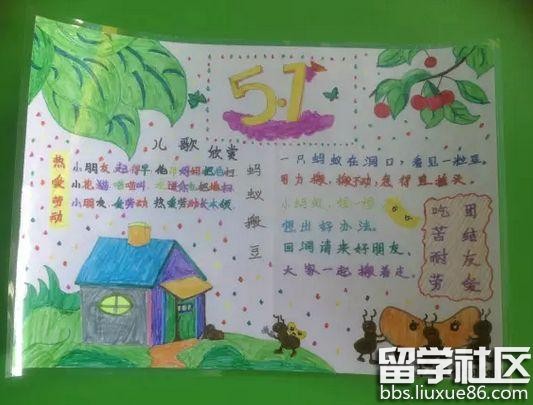 5.1
儿歌欣赏
热爱劳动
小朋友,起得早,他帮妈妈把地扫
小花猫,喵喵叫,
小朋友,爱劳动,热爱劳动长本领
蚂蚁搬豆
一只蚂蚁在洞口,看见一粒豆。
用力搬,搬不动,急得直摇头。
小蚂蚁,想一想
想出好办法。
回洞请来好朋友、
大家一起搬着走。
吃苦耐劳
团结友爱
留学社区
bbs.liuxue86.com